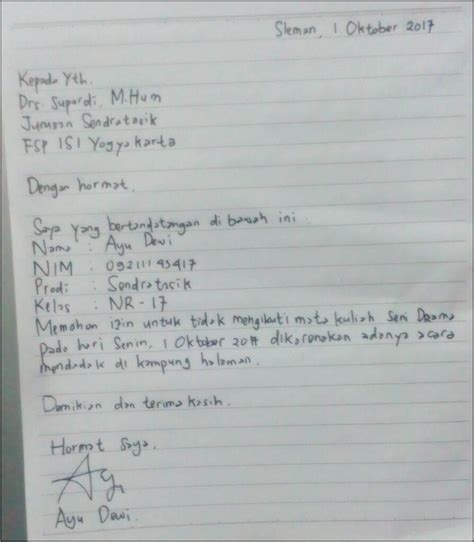 Sleman, 1 Oktober 2017
Kepada Yth.
Drs. Supardi, M.Hum
Jurusan Sendratasik
FSP ISI Yogyakarta
Dengan hormat.
Saya yang bertandatangan di bawah ini.
Nama : Ayu Dewi
NIM : 09211145417
Prodi : Sendratasik
Kelas : NR - 17
Memohon izin untuk tidak mengikuti mata kuliah Seni Drama
pada hari Senin, 1 Oktober 2017 dikarenakan adanya acara
mendadak di kampung halaman.
Demikian dan terima kasih.
Hormat Saya,
Ayu Dewi